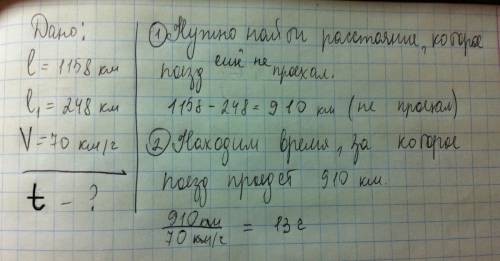 Дано:
l = 1158 км
l₁ = 248 км
V = 70 км/г
t - ?
① Нужно найти расстояние, которое
поезд ещё не проехал.
1158 - 248 = 910 км (не проехал)
② Находим время, за которое
поезд проедет 910 км.
910 км / 70 км/г = 13 г